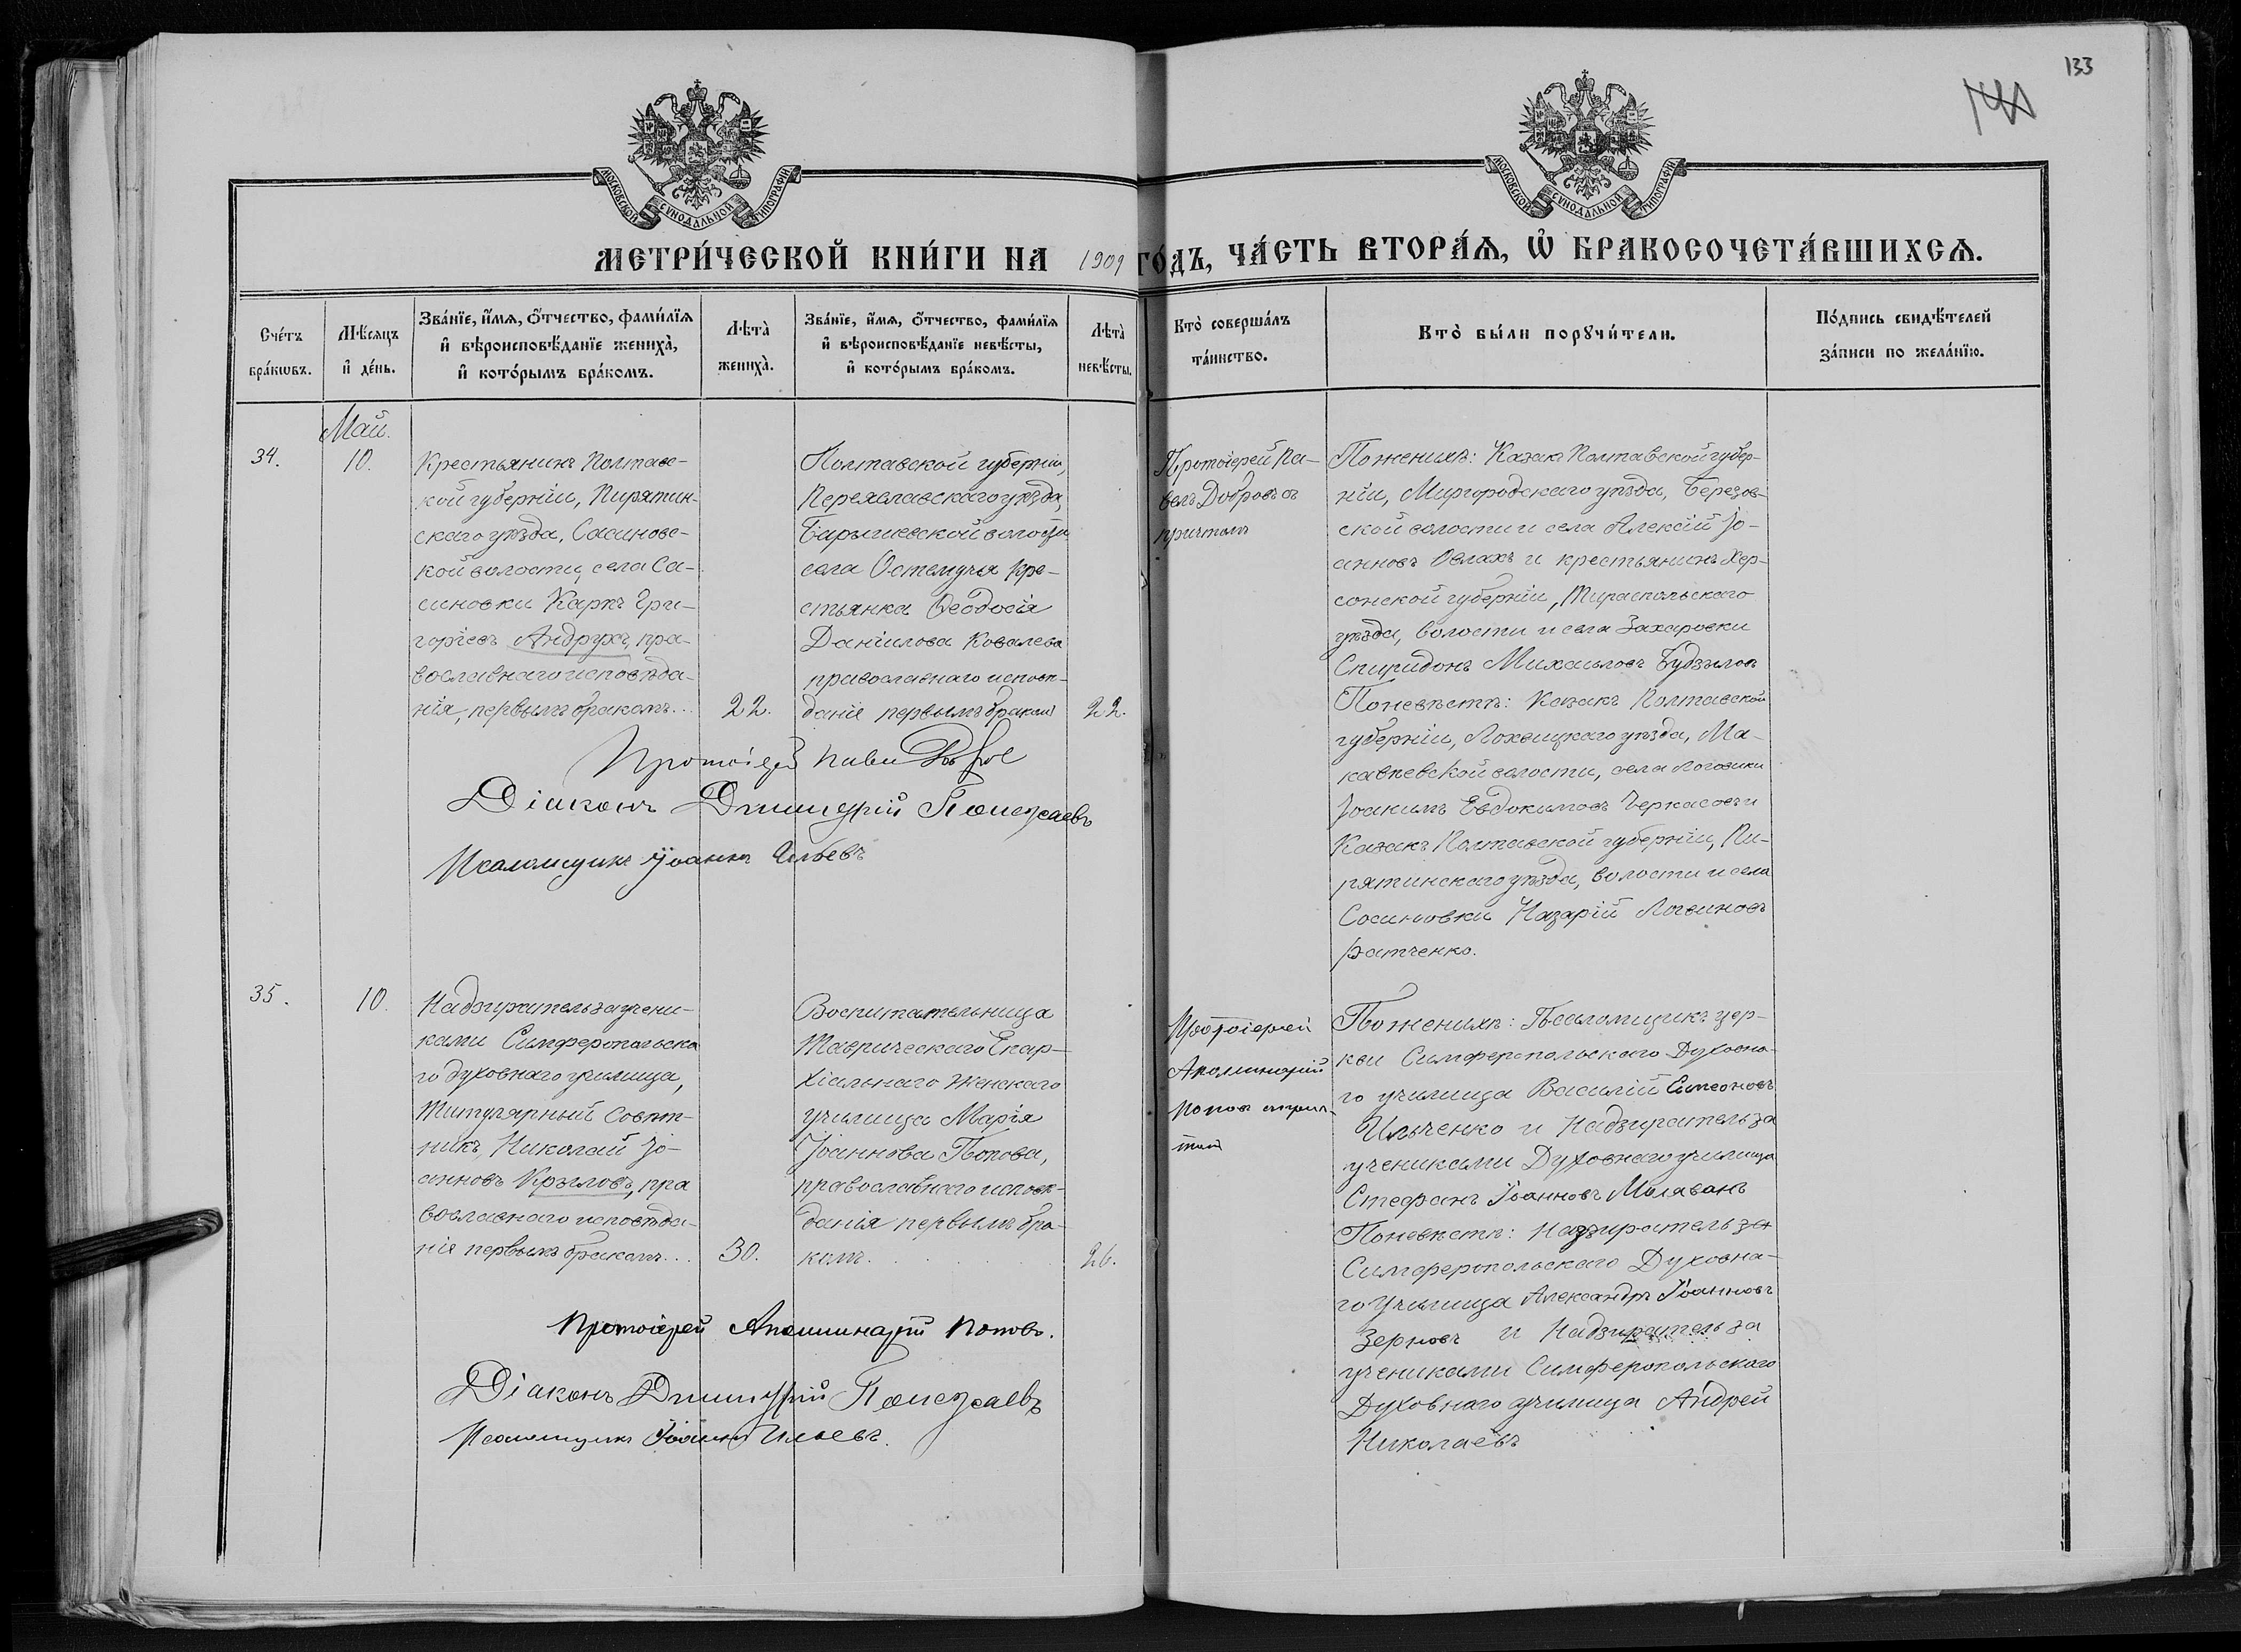 133
141
МОСКОВСКОЙ СѴНОДАЛЬНОЙ ТИПОГРАФІИ
МОСКОВСКОЙ СѴНОДАЛЬНОЙ ТИПОГРАФІИ
МЕТРИ́ЧЕСКОЙ КНИ́ГИ НА 1909 ГО́ДЪ, ЧА́СТЬ ВТОРА́Ѧ, Ѡ҆ БРАКОСОЧЕТА́ВШИХСѦ.
Сче́тъ
бра́кѡвъ.
Мѣ́сѧцъ
и҆ де́нь.
Зва́нїе, и҆́мѧ, ѻ҆́тчество, фами́лїѧ
и҆ вѣроисповѣ́данїе жениха̀,
и҆ кото́рымъ бра́комъ.
Лѣта̀
жениха̀.
Зва́нїе, и҆́мѧ, ѻ҆́тчество, фами́лїѧ
и҆ вѣроисповѣ́данїе невѣ́сты,
и҆ кото́рымъ бра́комъ.
Лѣта̀
невѣ́сты.
Кто̀ соверша́лъ
та́инство.
Кто̀ бы́ли порꙋчи́тели.
По́дпись свидѣ́телей
за́писи по жела́нїю.
Май.
34.
10.
Крестьянинъ Полтавс-
кой губерніи, Пирятин-
скаго уѣзда, Сасиновс-
кой волости, села Са-
синовки Карпъ Гри-
горіевъ Андрухъ, пра-
вославнаго исповѣда-
нія, первымъ бракомъ...
22.
Полтавской губерніи,
Переяславскаго уѣзда,
Барышевской волости
села Остелучья кре-
стьянка Ѳеодосія
Даніилова Ковалева
православнаго исповѣ-
данія первымъ бракомъ
22.
Протоіерей Па-
велъ Добровъ съ
причтомъ
По женихѣ: Казакъ Полтавской губер-
ніи, Миргородскаго уѣзда, Березов-
ской волости и села Алексій Іо-
анновъ Овлахъ и крестьянинъ Хер-
сонской губерніи, Тираспольскаго
уѣзда, волости и села Захаровки
Спиридонъ Михаиловъ
По невѣстѣ: Казакъ Полтавской
губерніи, Лохвицкаго уѣзда, Ма-
кавѣевской волости, села
Іоакимъ Евдокимовъ Черкасовъ и
Казакъ Полтавской губерніи, Пи-
рятинскаго уѣзда, волости и села
Сосиновки Назарій Логвиновъ
Протоіерей
Діаконъ Димитрій
Псаломщикъ Іоаннъ Ильевъ
35.
10.
Надзиратель за учени-
ками Симферопольска
го духовнаго училища,
Титулярный Совѣт-
никъ Николай Іо-
анновъ Крыловъ, пра
вославнаго исповѣда-
нія первымъ бракомъ...
30.
Воспитательница
Таврическаго Епар-
хіальнаго Женскаго
училища Марія
Іоаннова Попова,
православнаго исповѣ-
данія первымъ бра-
комъ.
26.
Протоіерей
Аполинарій
Поповъ съ прич-
томъ
По женихѣ: Псаломщикъ цер-
кви Симферопольскаго Духовна-
го училища Василій Симеоновъ
Ильченко и Надзиратель за
учениками Духовнаго училища
Стефанъ Іоанновъ Малаванъ
По невѣстѣ: Надзиратель за
Симферопольскаго Духовна-
го Училища Александръ Іоанновъ
Зерновъ и Надзиратель за
учениками Симферопольскаго
Духовнаго училища Андрей
Николаевъ
Протоіерей Аполинарій Поповъ.
Діаконъ Димитрій
Псаломщикъ Іоаннъ Ильевъ.